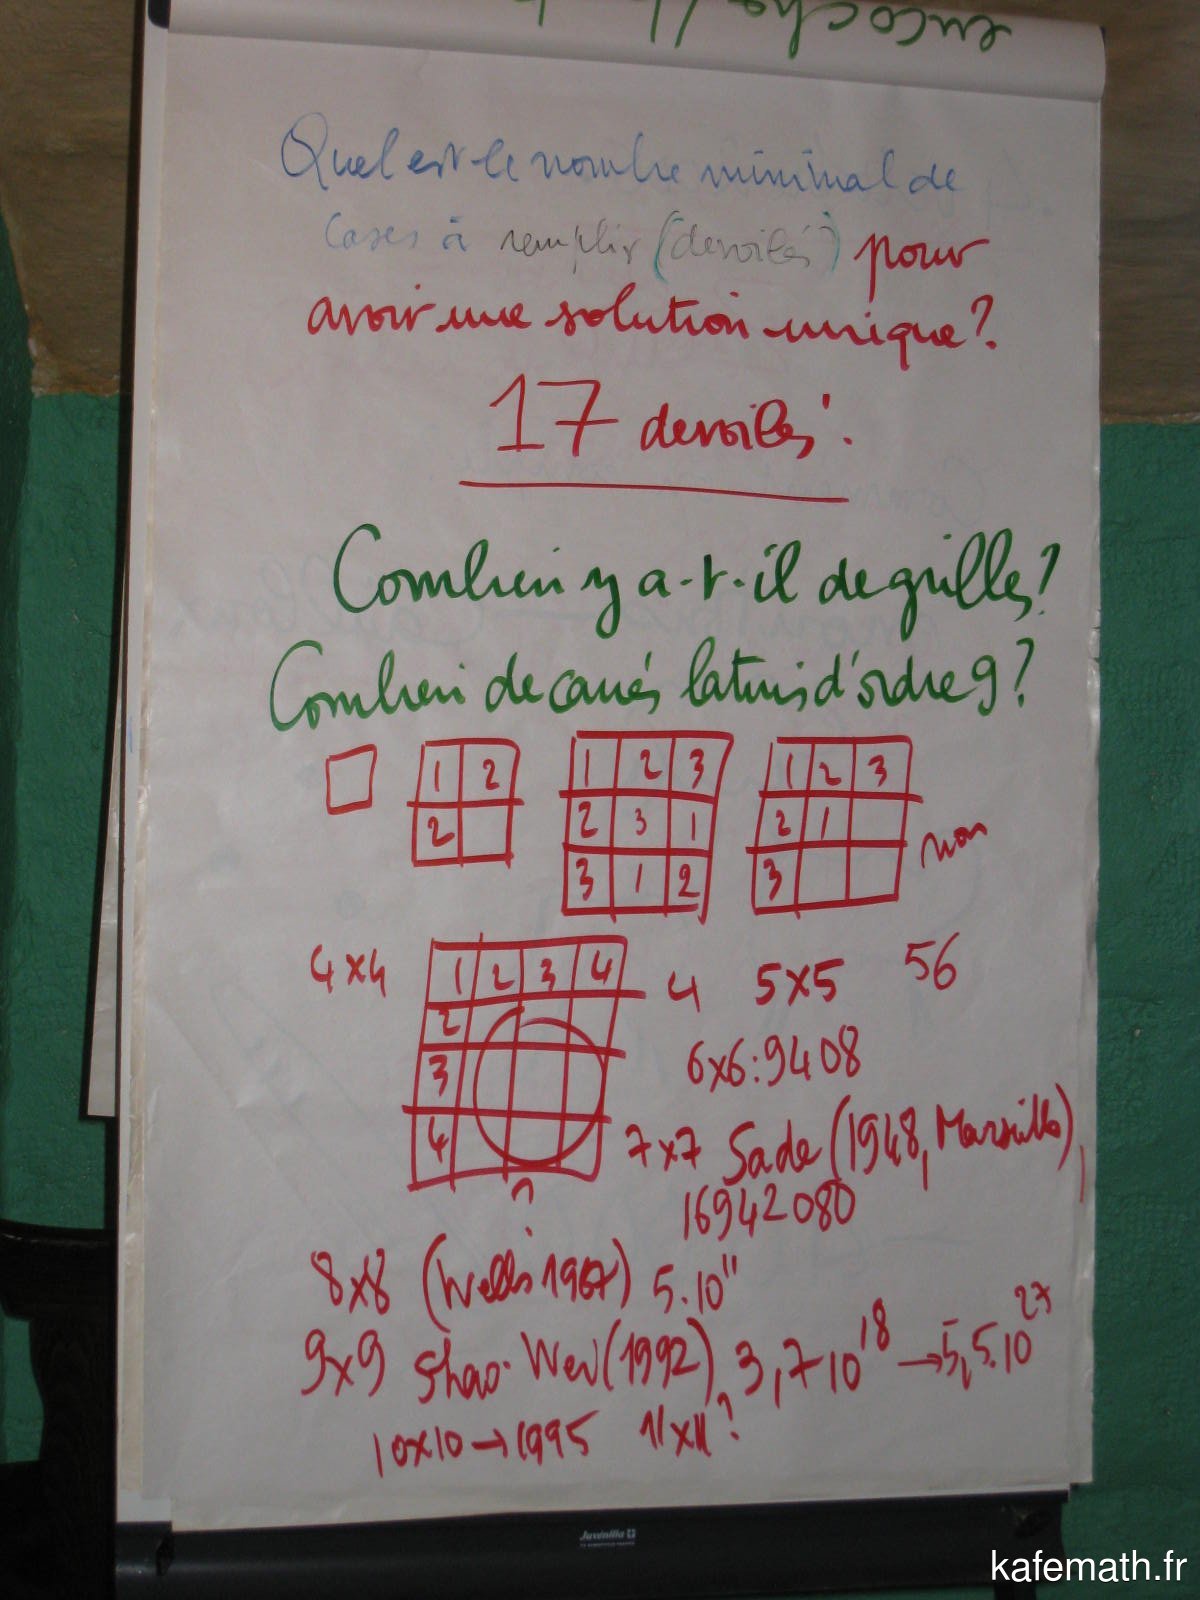 encoche
Quel est le nombre minimal de
cases à remplir (dévoilés) pour
avoir une solution unique?
17 dévoilés.
Combien y a-t-il de grilles?
Combien de carrés latins d'ordre 9?
1 2
2
1 2 3
2 3 1
3 1 2
1 2 3
2 1
3
non
4x4
1 2 3 4
2
3
4
?
4 5x5 56
6x6: 9408
7x7 Sade (1948, Marseille),
16942080
8x8 (Wells 1967) 5.10¹¹
9x9 Shao-Wei (1992), 3,7 10¹⁸ → 5,5.10²⁷
10x10 → 1995 11x11?
Juvenilia
kafemath.fr